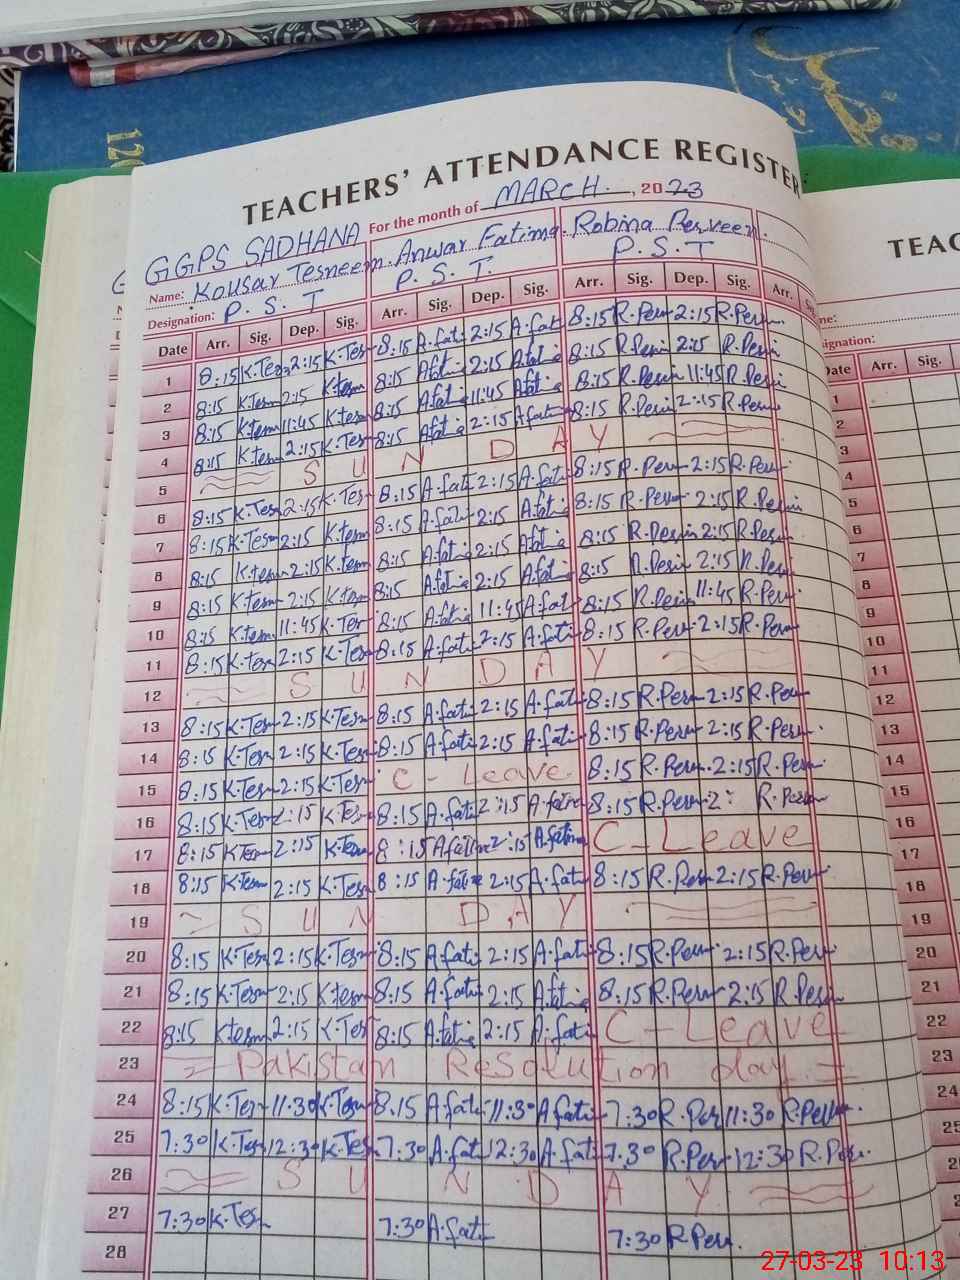 120
TEACHERS' ATTENDANCE REGISTER
GGPS SADHANA For the month of MARCH, 2023
Name: Kousar Tesneem. Anwar Fatima. Robina Perveen.
Designation: P. S. T P. S. T. P. S. T
Date Arr. Sig. Dep. Sig. Arr. Sig. Dep. Sig. Arr. Sig. Dep. Sig. Arr. Sig.
1 8:15 K.Tes 2:15 K.Tes 8:15 A.fati 2:15 A.fati 8:15 R.Perv 2:15 R.Perv
2 8:15 K.tesm 2:15 K.tesm 8:15 Afati 2:15 Afati 8:15 R.Pervi 2:15 R.Pervi
3 8:15 K.tesm 11:45 K.tesm 8:15 Afati 11:45 Afati 8:15 R.Pervi 11:45 R.Pervi
4 8:15 K.tesm 2:15 K.Tes 8:15 Afati 2:15 A.fati 8:15 R.Pervi 2:15 R.Perv
5 S U N D A Y
6 8:15 K.Tes 2:15 K.Tes 8:15 A.fati 2:15 A.fati 8:15 R.Perv 2:15 R.Perv
7 8:15 K.Tesm 2:15 K.tesm 8:15 A.fati 2:15 A.fati 8:15 R.Perv 2:15 R.Pervi
8 8:15 K.tesm 2:15 K.tesm 8:15 A.fati 2:15 Afati 8:15 R.Pervi 2:15 R.Pervi
9 8:15 K.tesm 2:15 K.tesm 8:15 A.fati 2:15 A.fati 8:15 R.Pervi 2:15 R.Pervi
10 8:15 K.tesm 11:45 K.Tes 8:15 A.fati 11:45 A.fati 8:15 R.Pervi 11:45 R.Perv
11 8:15 K.tes 2:15 K.Tes 8:15 A.fati 2:15 A.fati 8:15 R.Perv 2:15 R.Perv
12 S U N D A Y
13 8:15 K.Tesm 2:15 K.Tesm 8:15 A.fati 2:15 A.fati 8:15 R.Perv 2:15 R.Perv
14 8:15 K.Tes 2:15 K.Tes 8:15 A.fati 2:15 A.fati 8:15 R.Perv 2:15 R.Perv
15 8:15 K.Tes 2:15 K.Tes C - Leave 8:15 R.Perv 2:15 R.Perv
16 8:15 K.Tes 2:15 K.Tes 8:15 A.fati 2:15 A.fati 8:15 R.Perv 2: R.Perv
17 8:15 K.Tem 2:15 K.Tesm 8:15 A.fati 2:15 A.fatima C - Leave
18 8:15 K.Tesm 2:15 K.Tes 8:15 A.fati 2:15 A.fati 8:15 R.Perv 2:15 R.Perv
19 S U N D A Y
20 8:15 K.Tesm 2:15 K.Tesm 8:15 A.fati 2:15 A.fati 8:15 R.Perv 2:15 R.Perv
21 8:15 K.Tes 2:15 K.tesm 8:15 A.fati 2:15 A.fati 8:15 R.Perv 2:15 R.Pervi
22 8:15 K.tesm 2:15 K.Tes 8:15 A.fati 2:15 A.fati C - Leave
23 Pakistan Resolution day
24 8:15 K.Tes 11:30 K.Tesm 8:15 A.fati 11:30 A.fati 7:30 R.Per 11:30 R.Perv
25 7:30 K.Tes 12:30 K.Tes 7:30 A.fati 12:30 A.fati 7:30 R.Perv 12:30 R.Perv
26 S U N D A Y
27 7:30 K.Tes 7:30 A.fati 7:30 R.Perv
28
TEAC
me:
signation:
Date Arr. Sig.
1
2
3
4
5
6
7
8
9
10
11
12
13
14
15
16
17
18
19
20
21
22
23
24
25
27-03-23 10:13